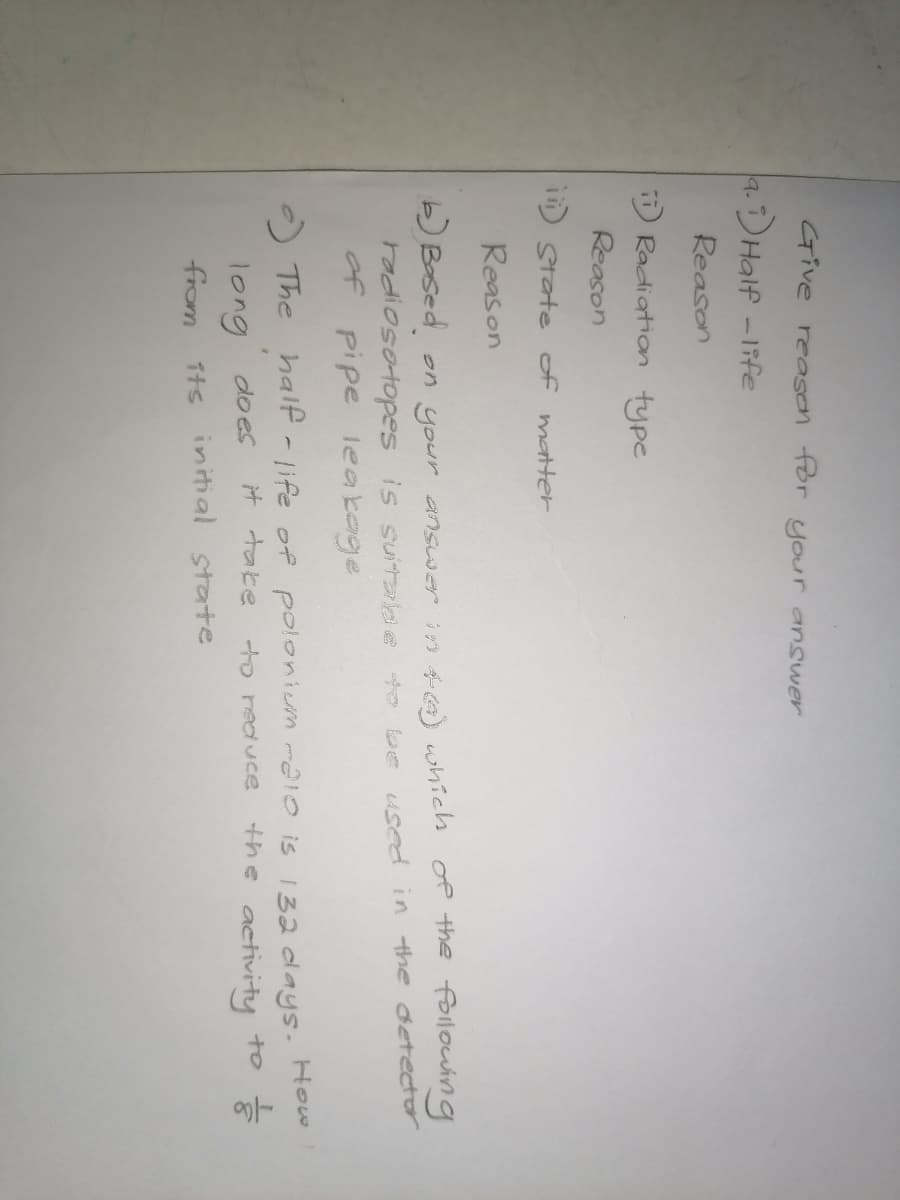 Give reason for your answer
a. i) Half - life
Reason
ii) Radiation type
Reason
iii) State of matter
Reason
b) Based on your answer in 4(a) which of the following
radiosotopes is suitable to be used in the detector
of pipe leakage
c) The half - life of polonium -210 is 132 days. How
long does it take to reduce the activity to 1/8
from its initial state